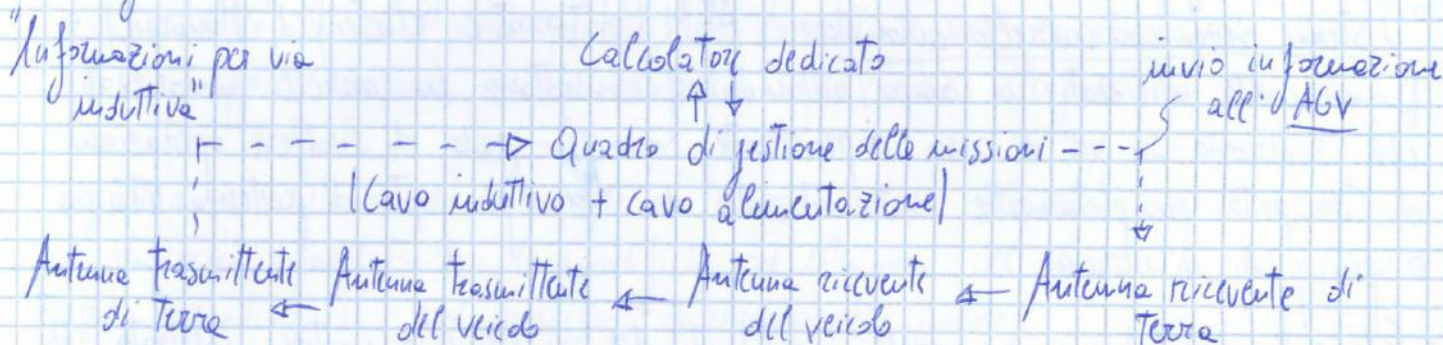 "Informazioni per via
induttiva"
Calcolatore dedicato
invio informazione
all' AGV
Quadro di gestione delle missioni
(Cavo induttivo + cavo alimentazione)
Antenna trasmittente
di Terra
Antenna trasmittente
del veicolo
Antenna ricevente
del veicolo
Antenna ricevente di
Terra